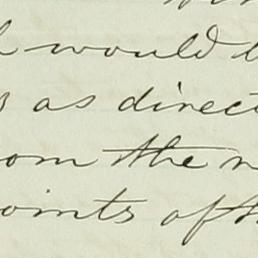 would
as direct
om the
oints of th